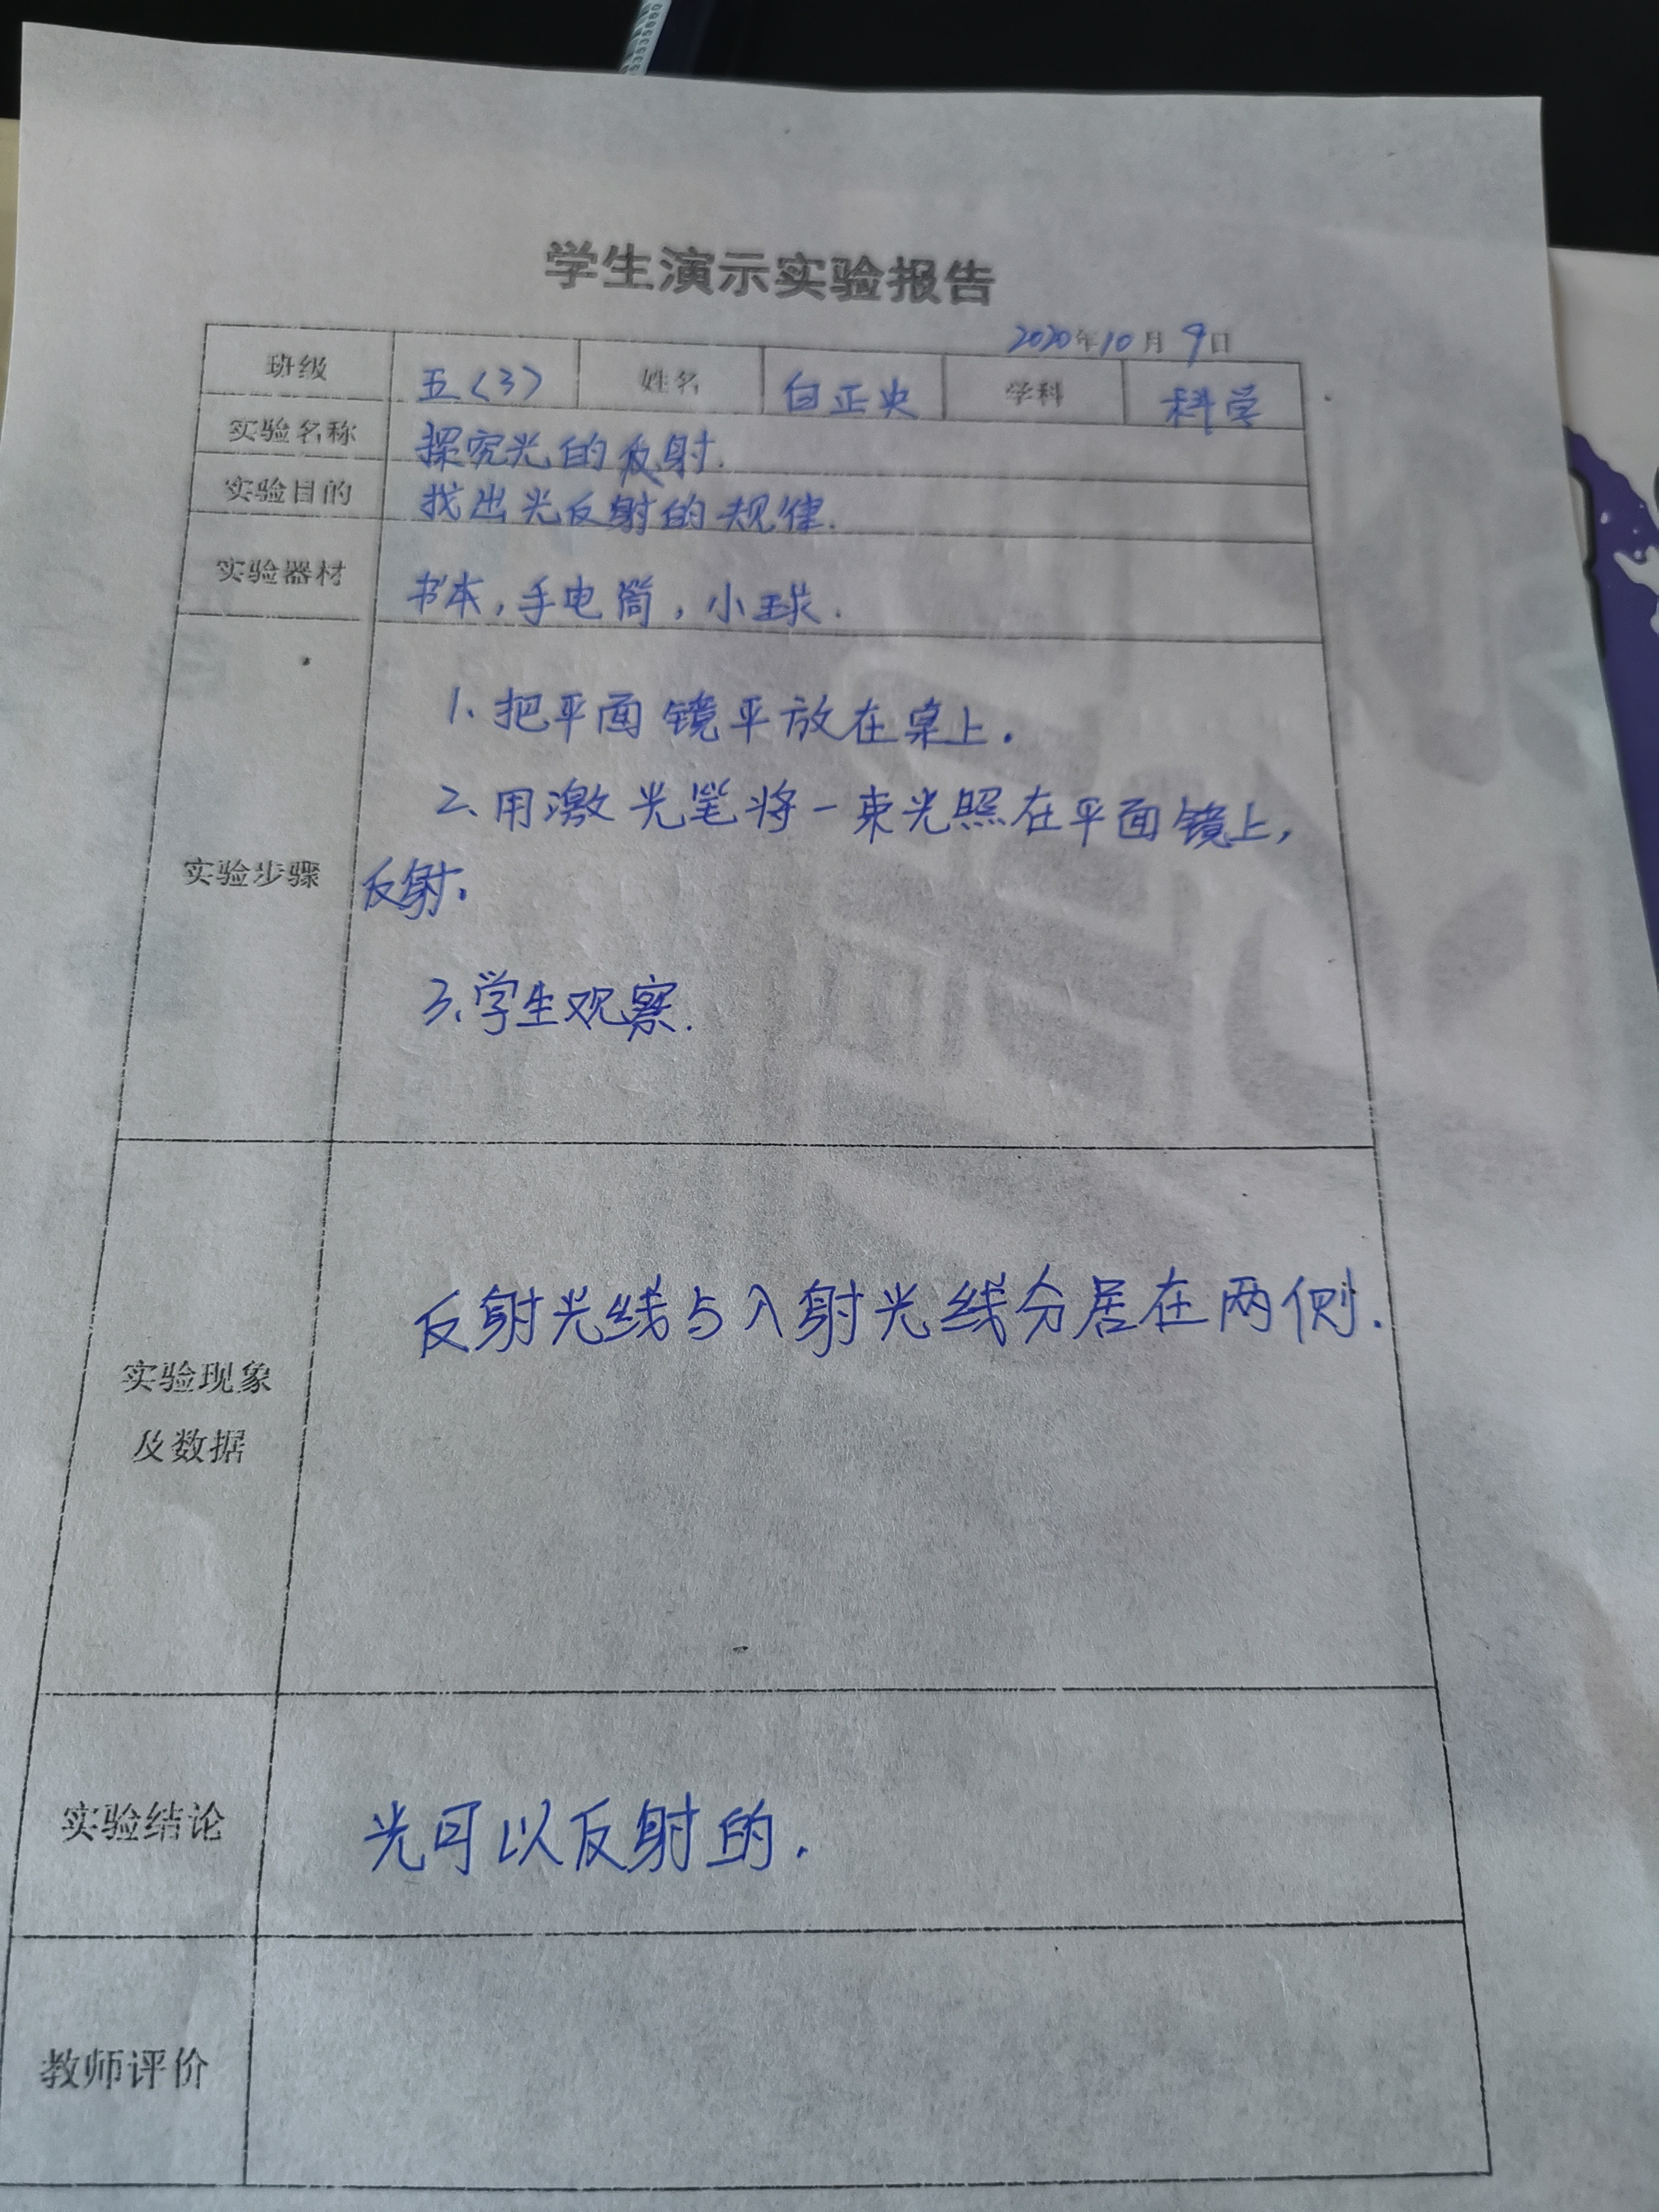 学生演示实验报告
2020年10月9日
班级 五(3) 姓名 白正央 学科 科学
实验名称 探究光的反射.
实验目的 找出光反射的规律.
实验器材 书本,手电筒,小球.
1、把平面镜平放在桌上.
2、用激光笔将一束光照在平面镜上,
实验步骤 反射.
3、学生观察.
反射光线与入射光线分居在两侧.
实验现象
及数据
实验结论 光可以反射的.
教师评价